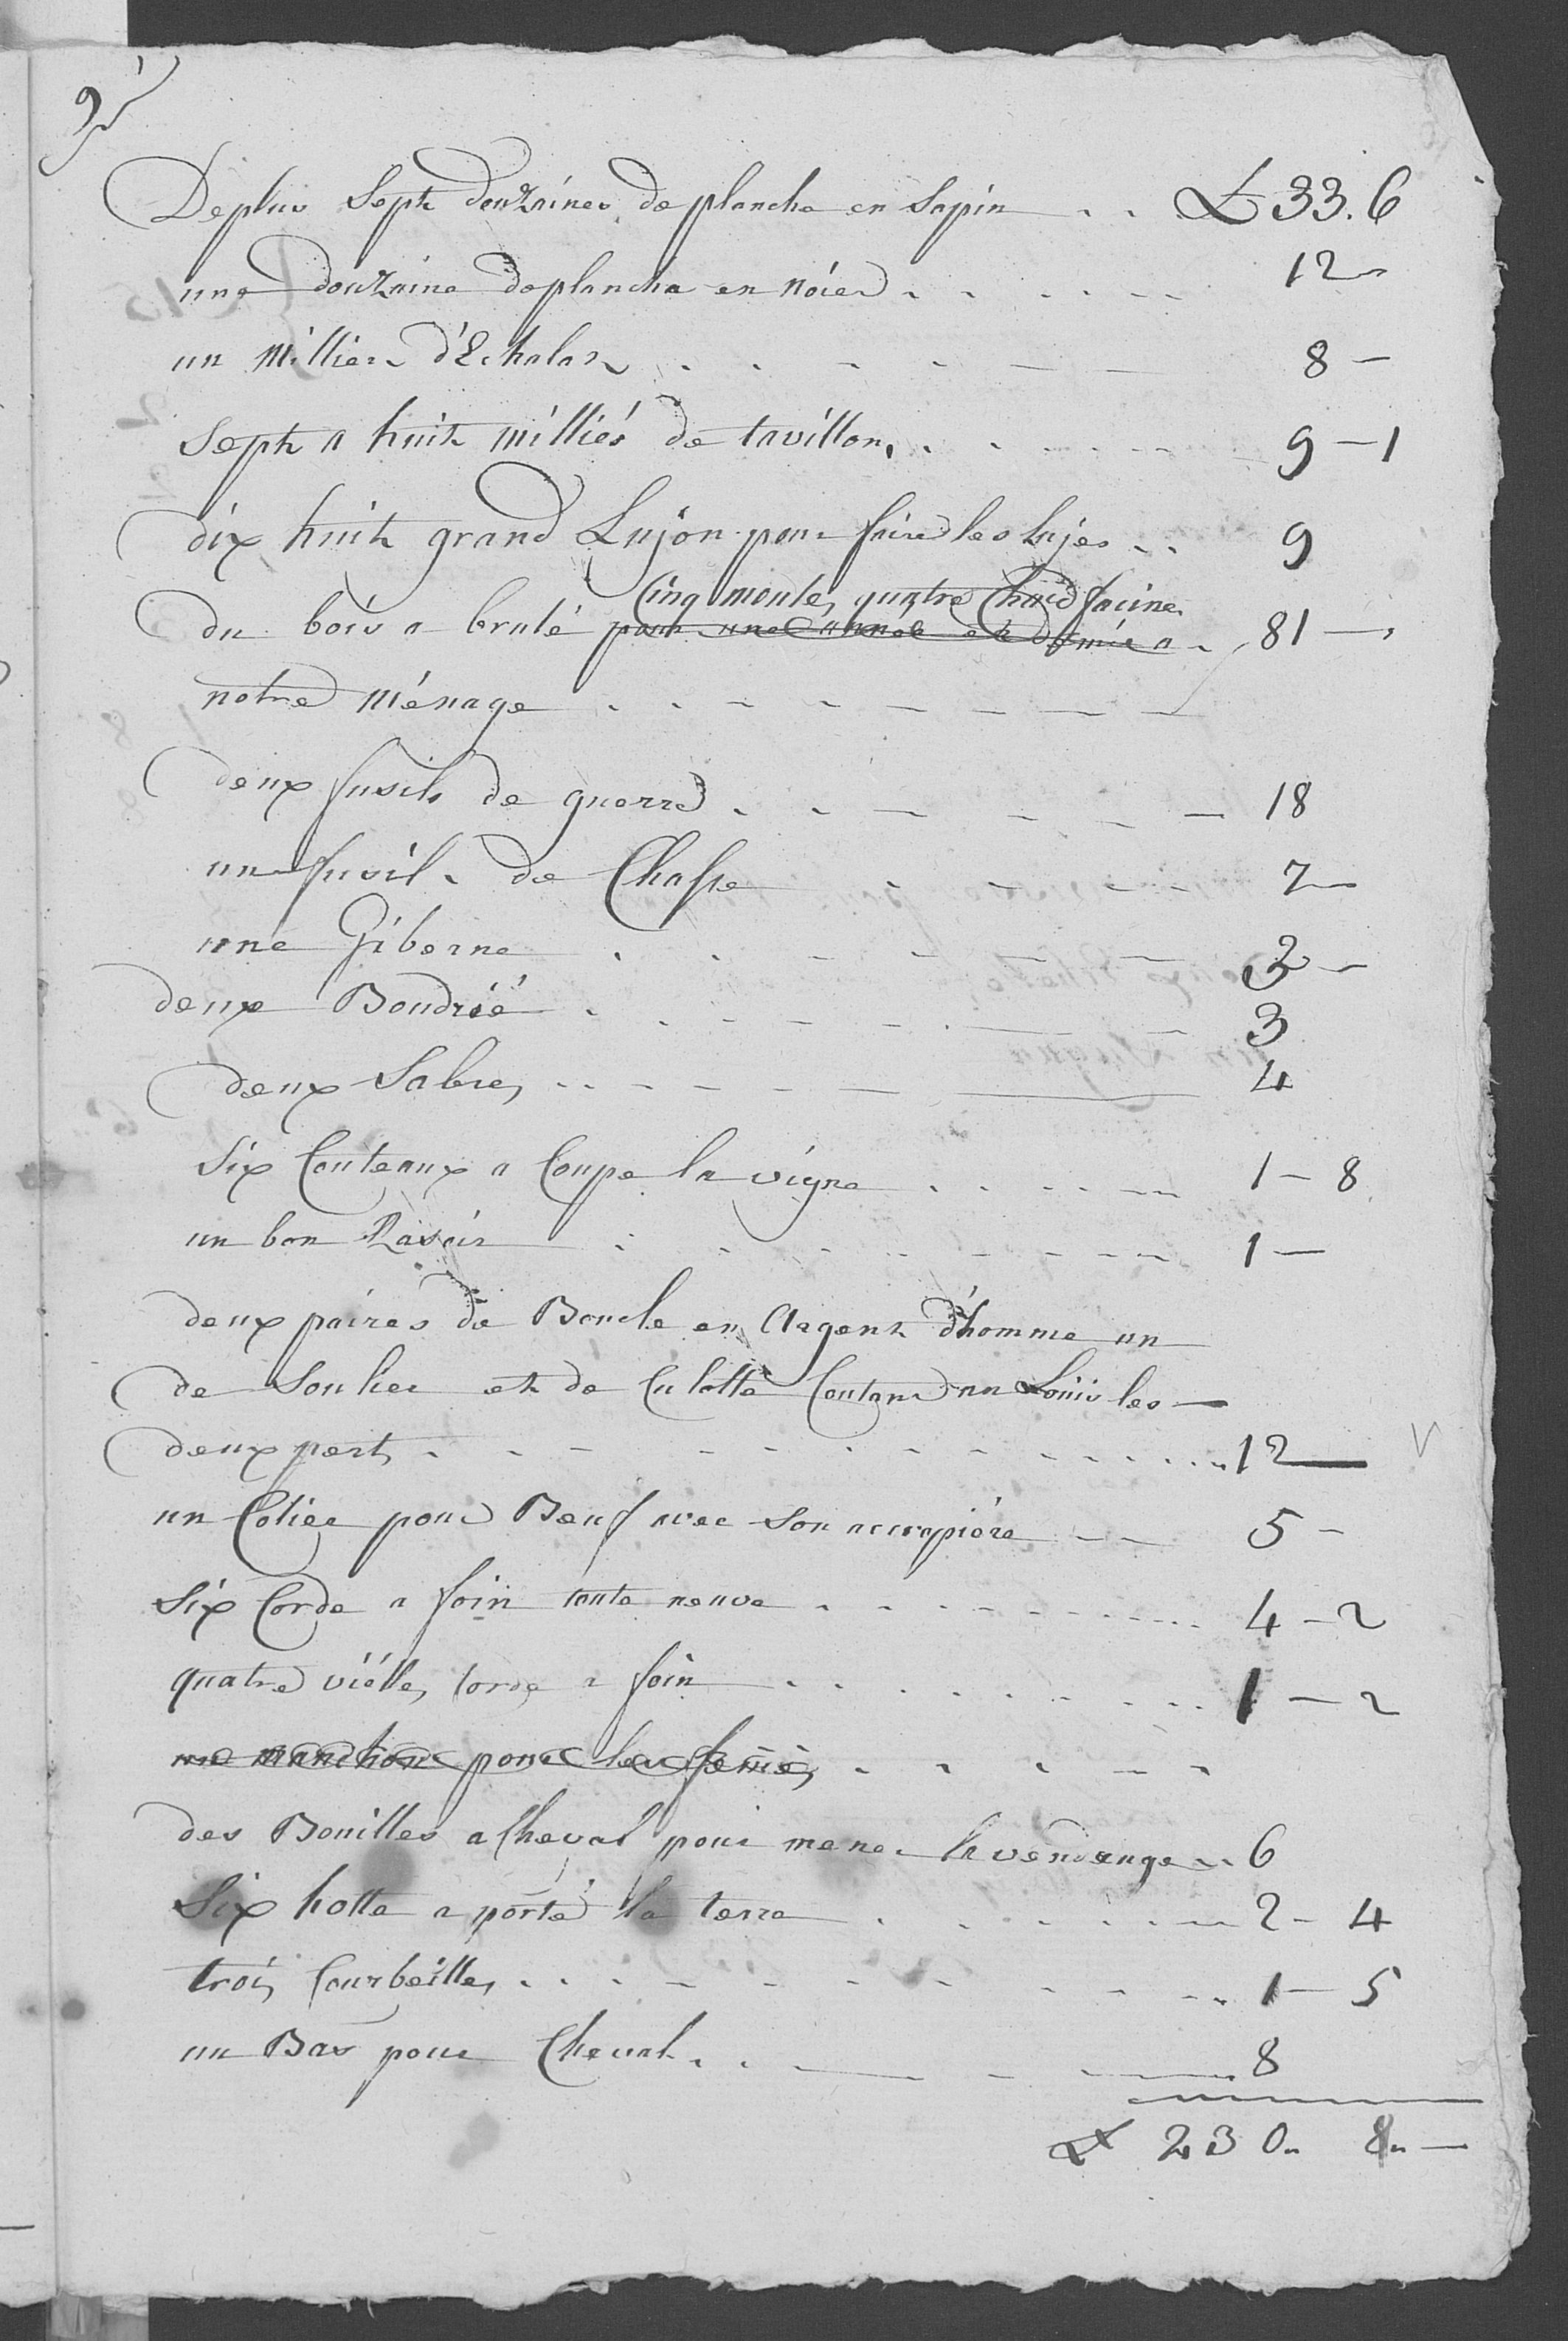 9
Deplus Septs douzaines de planche en Sapin . . £ 33. 6
une douzaine de planche en nóier . . . . . 12 -
un Millier d'Echalas . . . . . 8 -
Septs a huit milliés de tavillon . . . . . 9 - 1
dix huit grand Lujon pour faire les lujes . . 9
Cinq moule, quatre Chard facine
du bois a brulé pour une année et demie a . 81 -
notre Ménage . . . . .
deux fusils de guerre . . . . . 18
un fusil de Chasse . . . . 7 -
une Giberne . . . . . 3 -
deux Boudrié . . . . . 3
deux Sabres . . . . . 4
Six Couteaux a Coupe la vigne . . . . . 1 - 8
un bon Rasoir . . . . . 1 -
deux paires de Boucle en Argent d'homme un
de Soulier et de Culotte Coutant un Louis les -
deux pert . . . . . 12 -
un Colier pour Beuf avec son accrapiére . . 5 -
Six Corde a foin toute neuve . . . . . 4 - 2
quatre viélle corde a foin . . . . . 1 - 2
une pour les . . . . .
des Bouilles a Cheval pour mener la vendange . . 6
Six hotte a porté la terre . . . . . 2 - 4
trois Courbeilles . . . . . 1 - 5
un Bas pour Cheval . . . . . 8
£ 230 " 8 " -